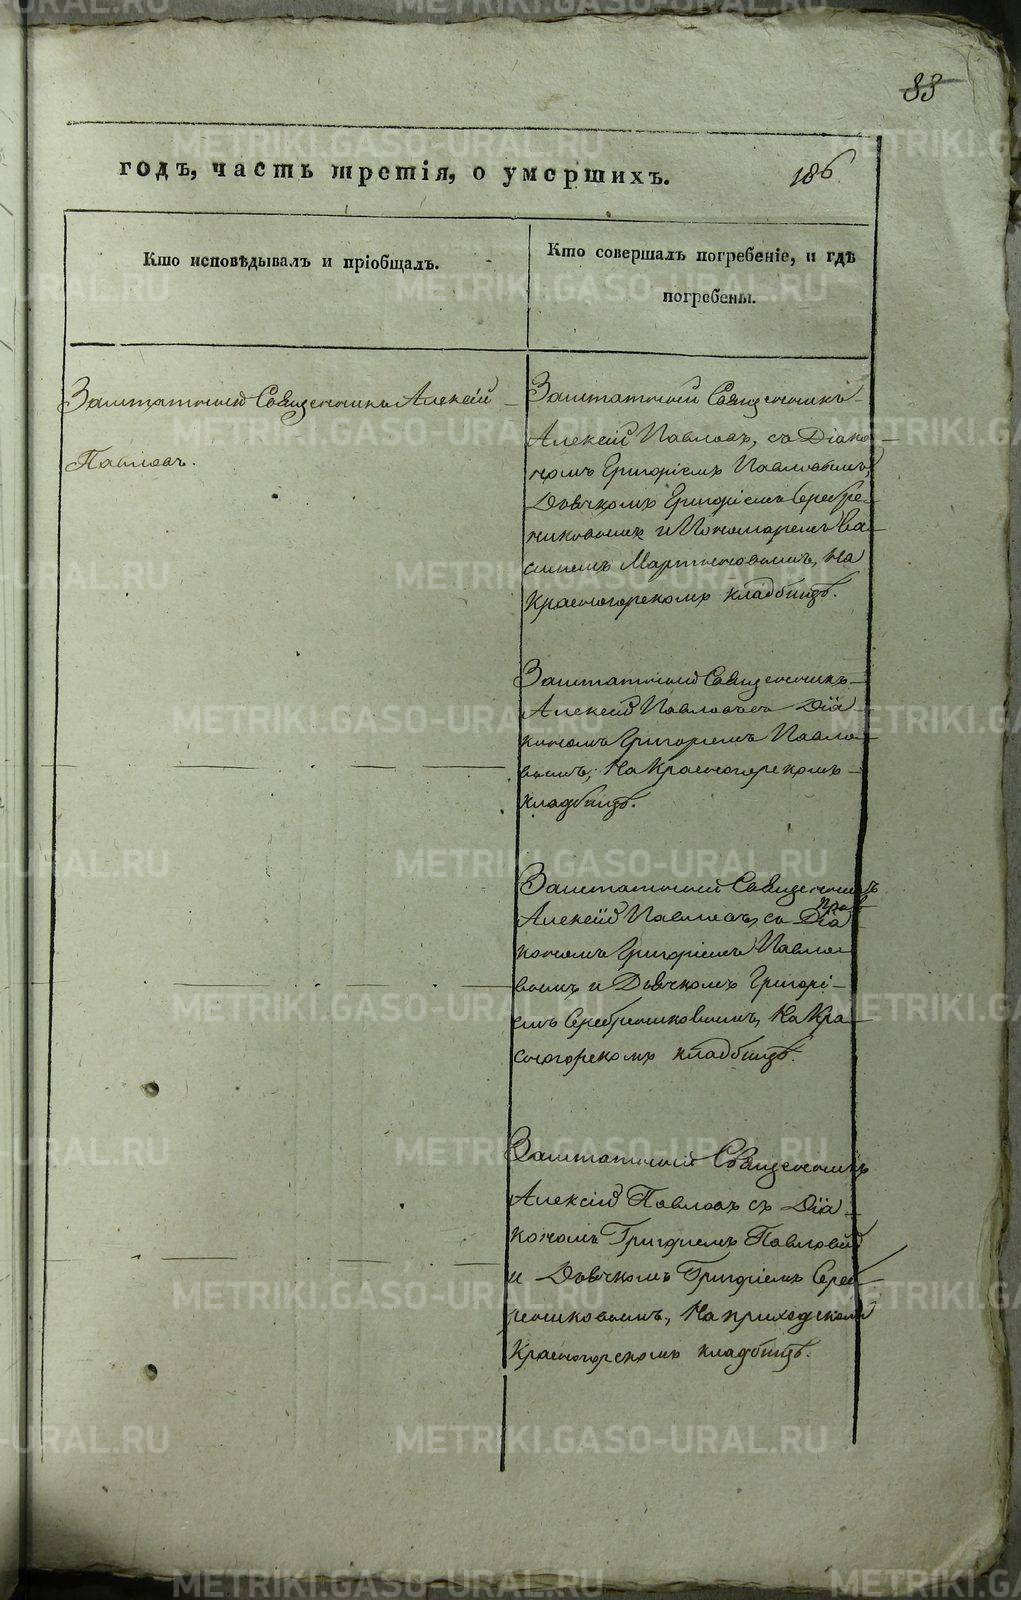 83
годъ, часть третія, о умершихъ.
186
Кто исповѣдывалъ и пріобщалъ.
Кто совершалъ погребеніе, и гдѣ
погребены.
Заштатный Священникъ Алексій
Павловъ.
Заштатный Священникъ
Алексій Павловъ, съ Діако-
номъ Григоріемъ Павловымъ,
Дьячкомъ Григоріемъ Серебре-
никовымъ и Пономаремъ Ва-
силіемъ Мартиновымъ, на
Красногорскомъ кладбищѣ.
Заштатный Священникъ
Алексій Павловъ съ Діа-
кономъ Григоріемъ Павло-
вымъ, на Красногорскомъ
кладбищѣ.
Заштатный Священникъ
Алексій Павловъ, съ Діа-
кономъ Григоріемъ Павло-
вымъ и Дьячкомъ Григорі-
емъ Серебрениковымъ, на Кра-
сногорскомъ кладбищѣ.
Заштатный Священникъ
Алексій Павловъ съ Діа-
кономъ Григоріемъ
и Дьячкомъ Григоріемъ Сереб-
рениковымъ, на приходскомъ
Красногорскомъ кладбищѣ.
METRIKI.GASO-URAL.RU